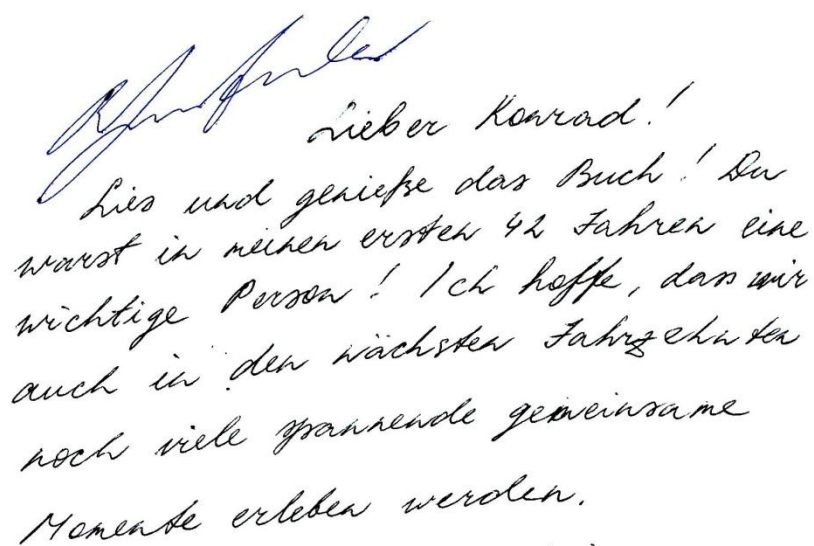 Lieber Konrad!
Lies und genieße das Buch! Du
warst in meinen ersten 42 Jahren eine
wichtige Person! Ich hoffe, dass wir
auch in den nächsten Jahrzehnten
noch viele spannende gemeinsame
Momente erleben werden.